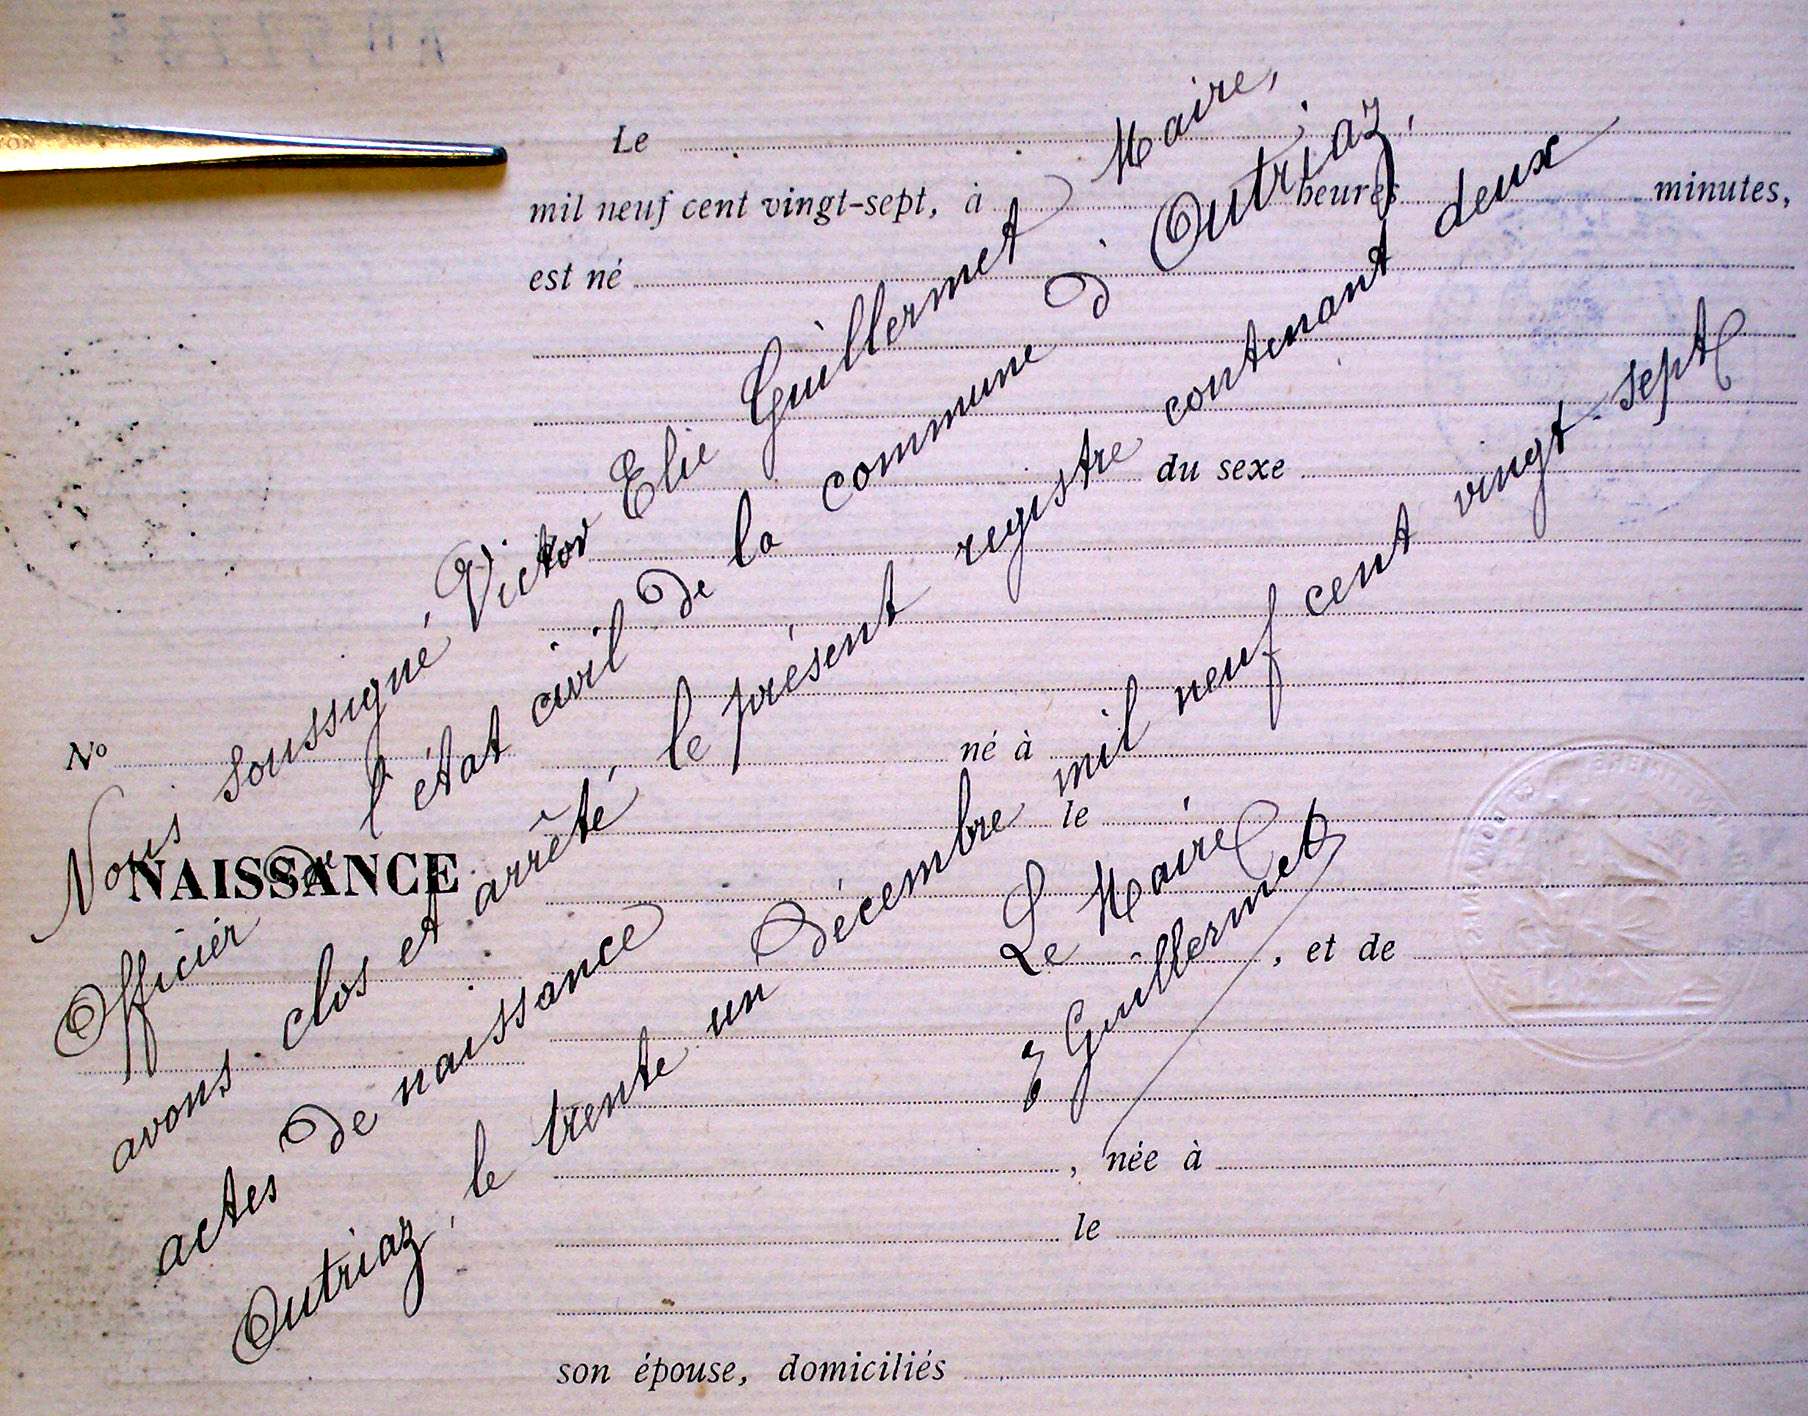 Le
mil neuf cent vingt-sept, à heures minutes,
est né
du sexe
N°
NAISSANCE
né à
le
, et de
, née à
le
son épouse, domiciliés
Nous soussigné, Victor Elie Guillermet Maire,
Officier de l'état civil de la commune d'Outriaz,
avons clos et arrêté le présent registre contenant deux
actes de naissance
Outriaz, le trente un décembre mil neuf cent vingt-sept
Le Maire
E Guillermet